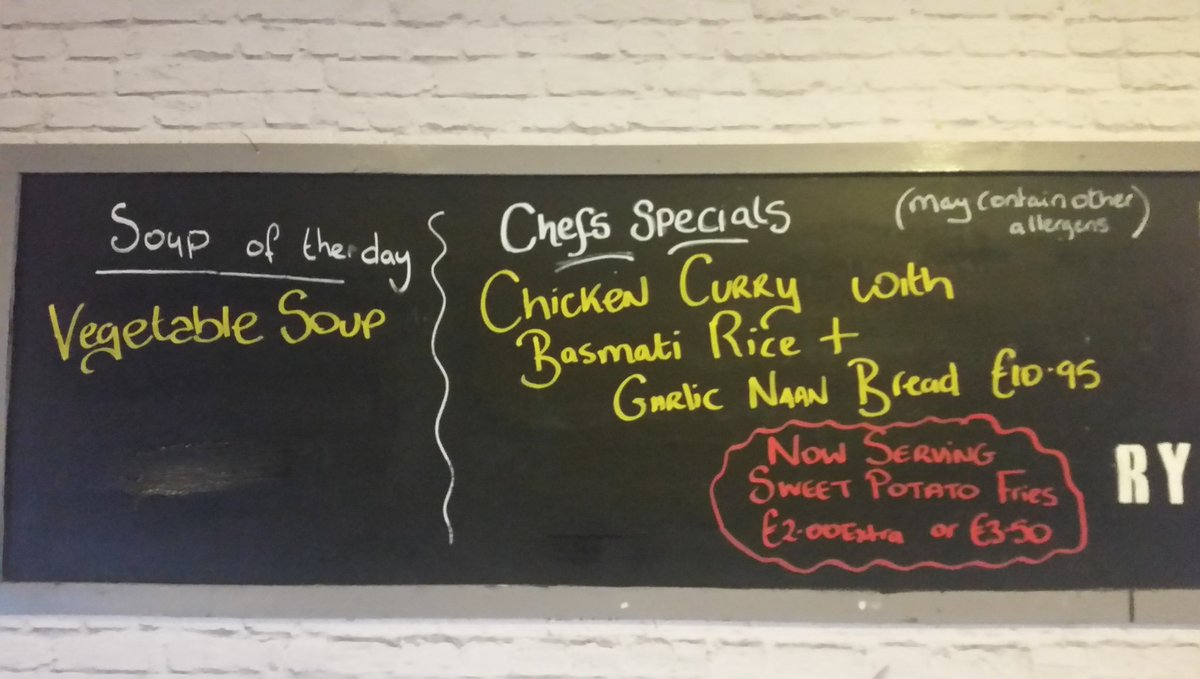 Soup of the day
Vegetable Soup
Chefs Specials
(may contain other
allergens)
Chicken Curry with
Basmati Rice +
Garlic Naan Bread £10.95
Now Serving
Sweet Potato Fries
£2.00 Extra or £3.50
RY